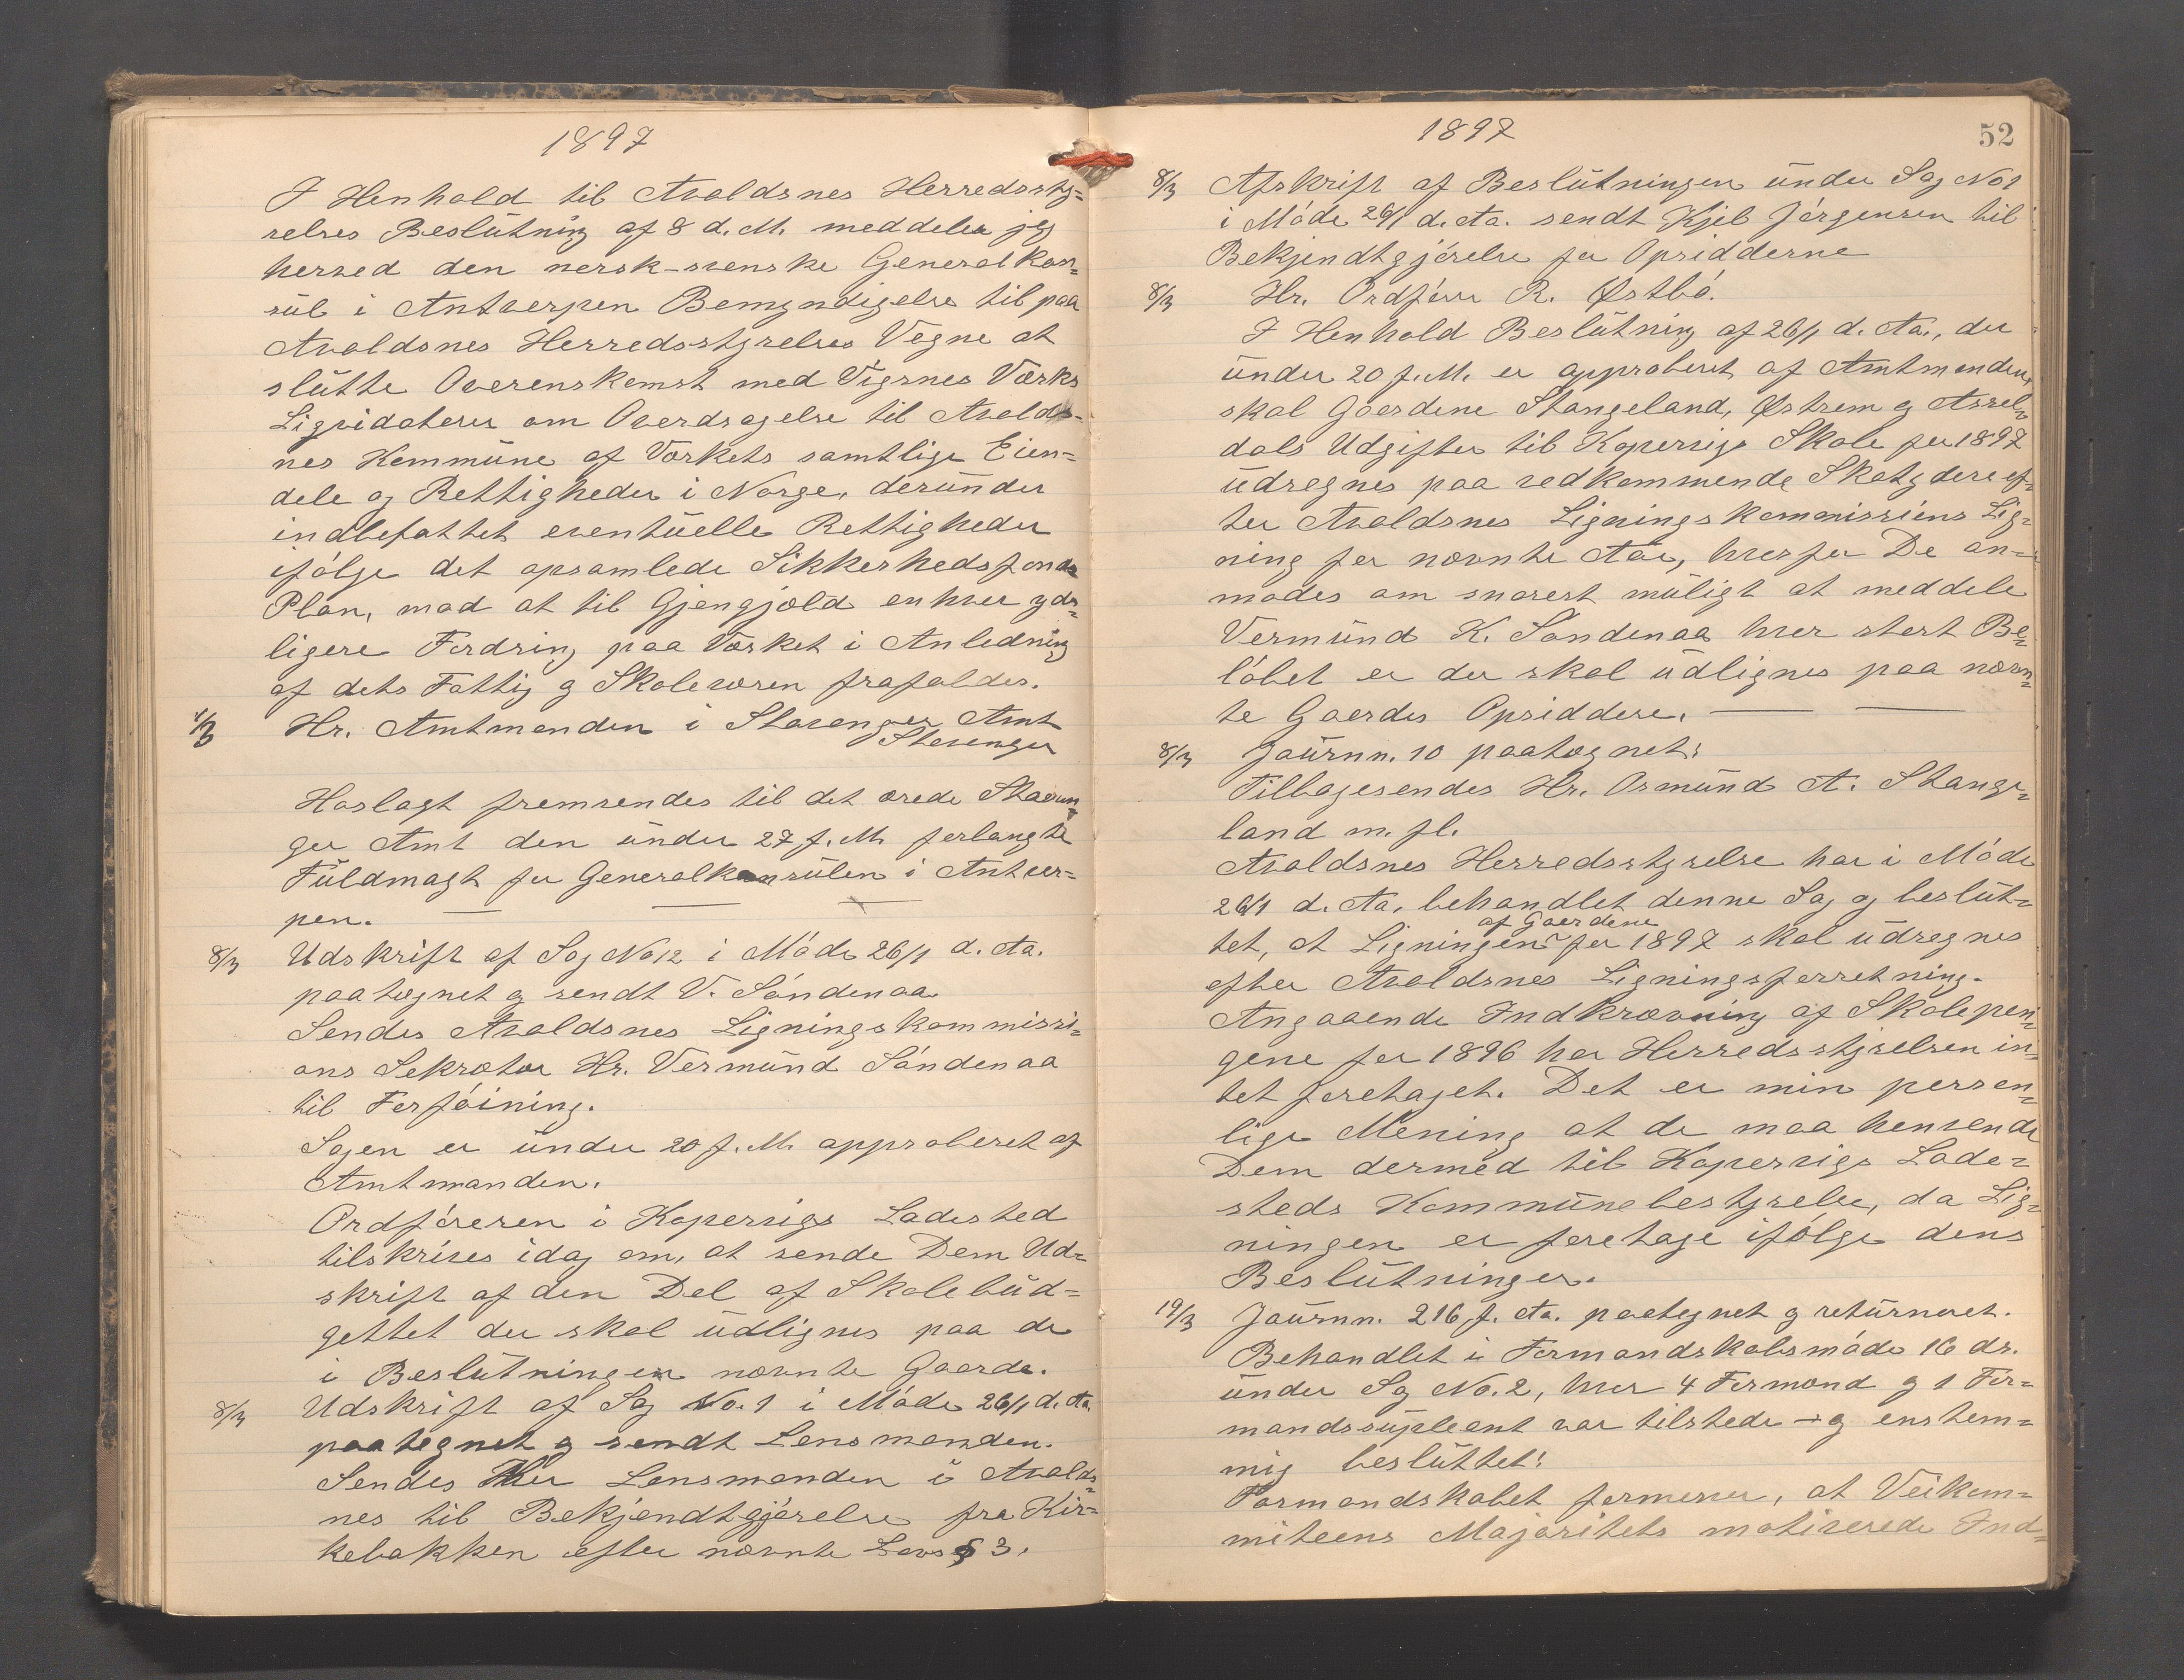 1897
I Henhold til Avaldsnes Herredssty=
relses Beslutning af 8 d. M. meddeler jeg
herved den norsk-svenske Generalkon=
sul i Antverpen Bemyndigelse til paa
Avaldsnes Herredsstyrelses Vegne at
slutte Overenskomst med Vigsnes Værks
Liqvidatorer om Overdragelse til Avalds=
nes Kommune af Værkets samtlige Eien=
dele og Rettigheder i Norge, derunder
indbefattet eventuelle Rettigheder
ifølge det opsamlede Sikkerhedsfonds
Plan, mod at til Gjengjæld enhver yder=
ligere Fordring paa Værket i Anledning
af dets Fattig og Skolevæsen frafaldes.
1/3 Hr. Amtmanden i Stavanger Amt
Stavanger
Hoslagt fremsendes til det ærede Stavan=
ger Amt den under 27 f. M. forlangte
Fuldmagt for Generalkonsulen i Antver=
pen.
8/3 Udskrift af Sag No 12 i Møde 26/1 d. Aa.
paategnet og sendt V. Søndenaa
Sendes Avaldsnes Ligningskommissi=
ons Sekretær Hr. Vermund Søndenaa
til Forføining.
Sagen er under 20 f. M. approberet af
Amtmanden.
Ordføreren i Kopervigs Ladested
tilskrives idag om, at sende Dem Ud=
skrift af den Del af Skolebud=
gettet der skal udlignes paa de
i Beslutningen nævnte Gaarde.
8/3 Udskrift af Sag No. 1 i Møde 26/1 d. Aa.
paategnet og sendt Lensmanden.
Sendes Hr Lensmanden i Avalds=
nes til Bekjendtgjørelse fra Kir=
kebakken efter nævnte Lovs § 3.
1897
52
8/3 Afskrift af Beslutningen under Sag No 1
i Møde 26/1 d. Aa. sendt Kjel Jørgensen til
Bekjendtgjørelse for Opsidderne
8/3 Hr. Ordfører R. Østbø.
I Henhold Beslutning af 26/1 d. Aa., der
under 20 f. M. er approberet af Amtmanden,
skal Gaardene Stangeland, Østrem og Assel=
dals Udgifter til Kopervigs Skole for 1897
udregnes paa vedkommende Skatydere ef=
ter Avaldsnes Ligningskommissions Lig=
ning for nævnte Aar, hvorfor De an=
modes om snarest muligt at meddele
Vermund K. Søndenaa hvor stort Be=
løbet er der skal udlignes paa nævn=
te Gaardes Opsiddere.
8/3 Journn. 10 paategnet:
Tilbagesendes Hr. Osmund A. Stange=
land m. fl.
Avaldsnes Herredsstyrelse har i Møde
26/1 d. Aa. behandlet denne Sag og beslut=
af Gaardene
tet, at Ligningen for 1897 skal udregnes
efter Avaldsnes Ligningsforretning.
Angaaende Indkrævning af Skolepen=
gene for 1896 har Herredsstyrelsen in=
tet foretaget. Det er min person=
lige Mening at de maa henvende
Dem dermed til Kopervigs Lade=
steds Kommunebestyrelse, da Lig=
ningen er foretage ifølge dens
Beslutninger.
19/3 Journn. 216 f. Aa. paategnet og returneret.
Behandlet i Formandskabsmøde 16 ds.
under Sag No. 2, hvor 4 Formænd og 1 For=
mandssupleant var tilstede – og enstem=
mig besluttet:
Formandskabet formener, at Veikom=
miteens Majoritets motiverede Ind=